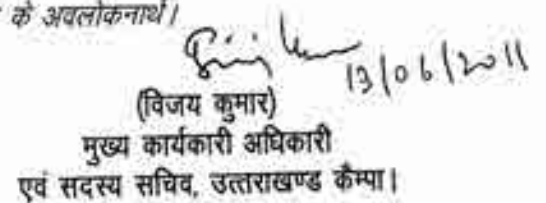 के अवलोकनार्थ।
13/06/2011
(विजय कुमार)
मुख्य कार्यकारी अधिकारी
एवं सदस्य सचिव, उत्तराखण्ड कैम्पा।